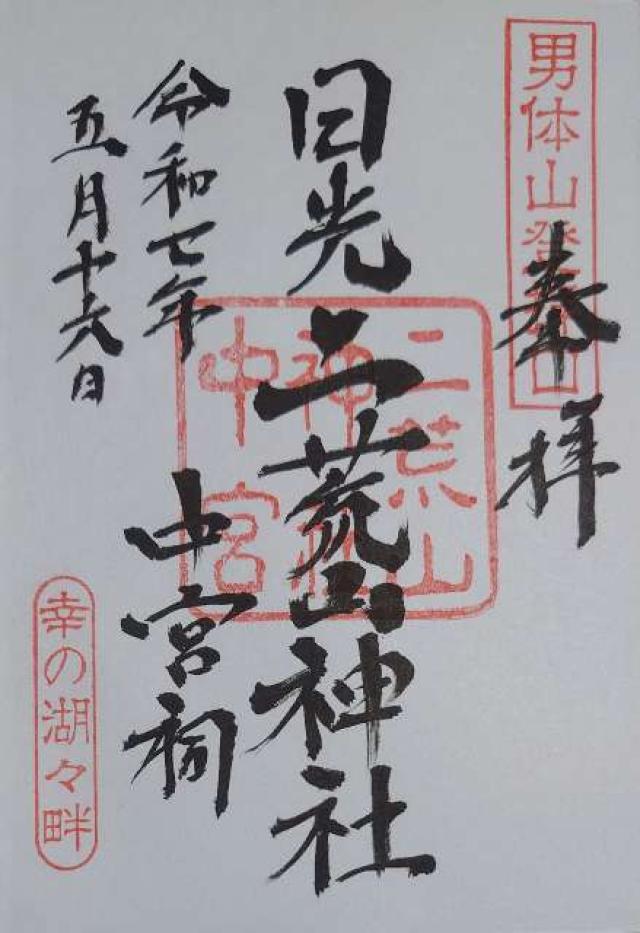 男体山登拝口
奉拝
日光二荒山神社
二荒山
神社
中宮
中宮祠
令和七年
五月十六日
幸の湖々畔